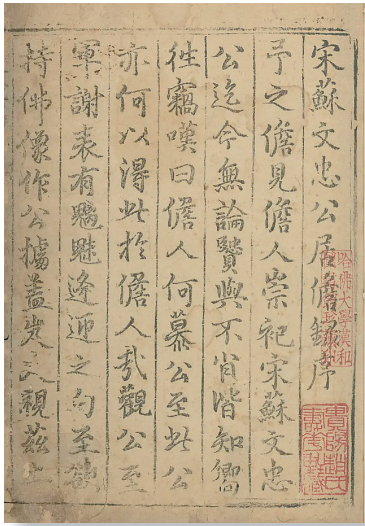 宋蘇文忠公居儋錄序
予之儋見儋人崇祀宋蘇文忠
公迄今無論賢與不肖皆知鄉
徃竊嘆曰儋人何慕公至此公
亦何以得此於儋人㢤觀公至
軍謝表有魑魅逢迎之句至欲
持佛像作公據蓋
哈佛大學漢和